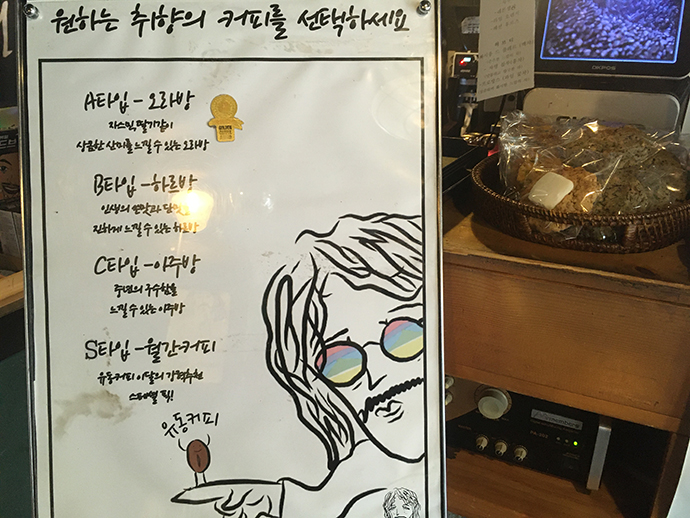 원하는 취향의 커피를 선택하세요
A타입 - 오라방
자스민, 딸기같이
상큼한 산미를 느낄 수 있는 오라방
B타입 - 하르방
인생의 쓴맛과 단맛을
진하게 느낄 수 있는 하르방
C타입 - 아주방
중년의 구수함을
느낄 수 있는 아주방
S타입 - 월간커피
유동커피 이달의 강력추천
스페셜 픽!
유동커피